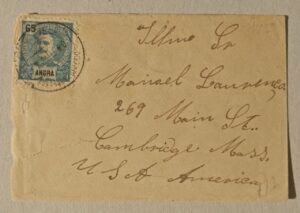 65
ANGRA
Illmo Sr
Manoel Lourenço
269 Main St.
Cambridge Mass.
USA America